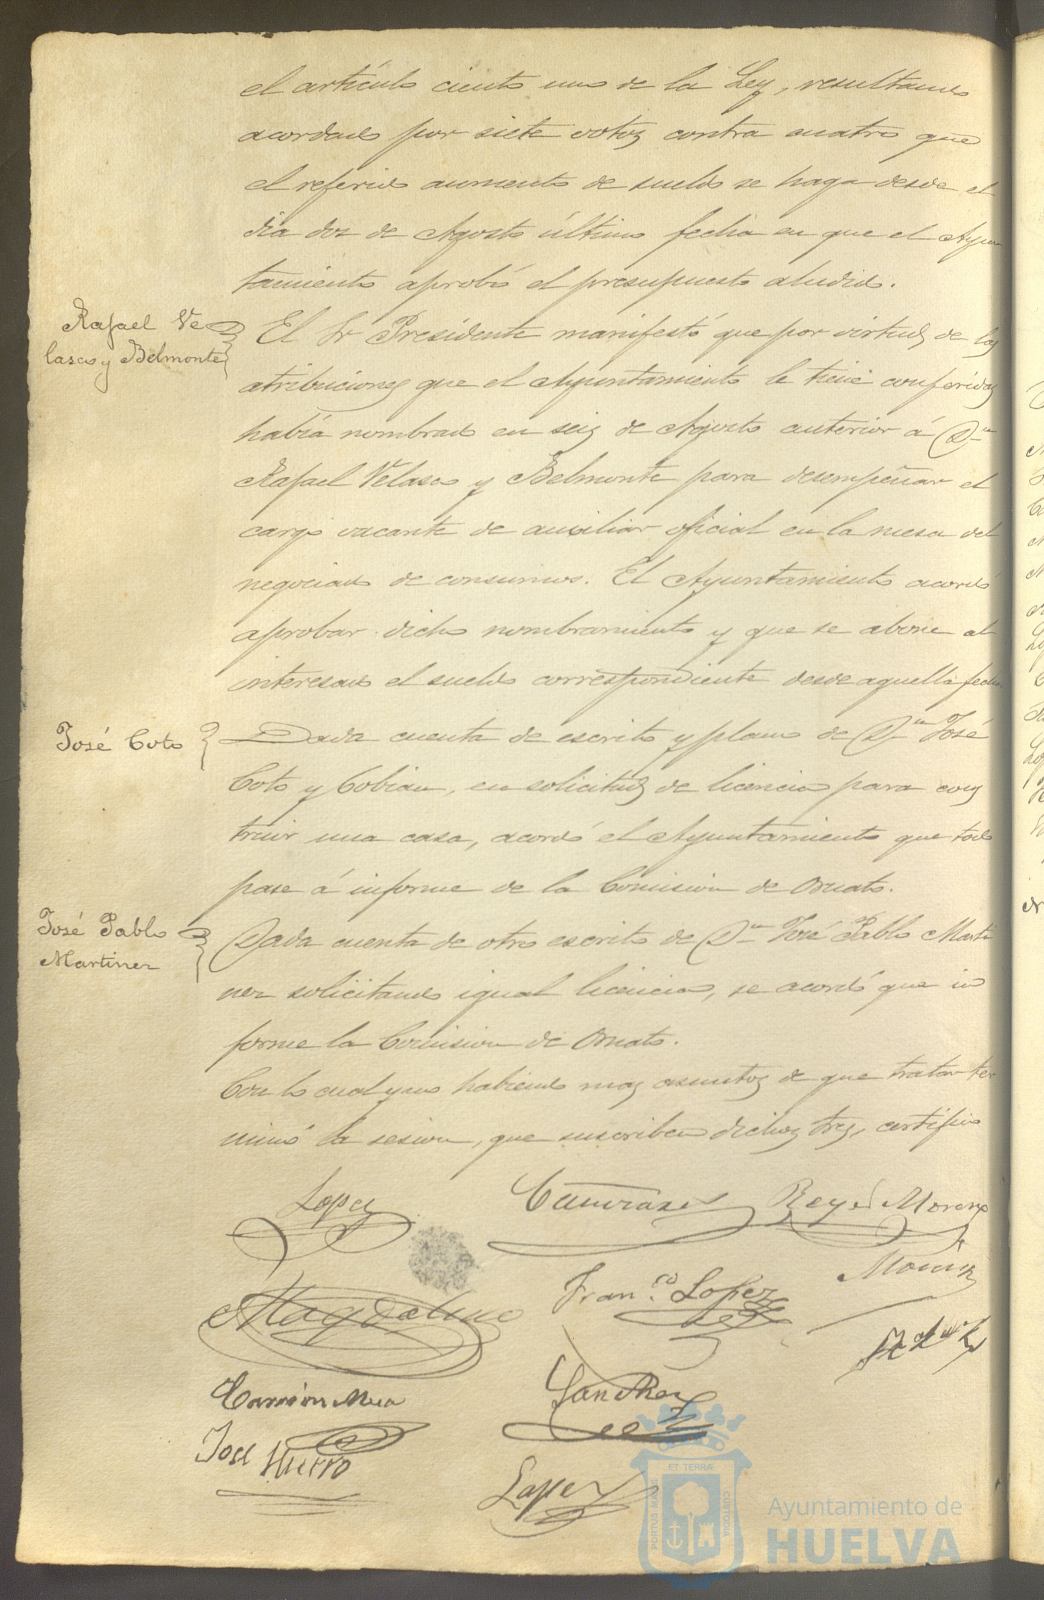 el artículo ciento uno de la Ley, resultando
acordado por siete votos contra cuatro que
el referido aumento de sueldo se haga desde el
dia dos de Agosto último fecha en que el Ayun
tamiento aprobó el presupuesto aludido.
Rafael Ve
lasco y Belmonte
El Sr Presidente manifestó que por virtud de las
atribuciones que el Ayuntamiento le tiene conferidas
había nombrado en seis de Agosto anterior á Dn
Rafael Velasco y Belmonte para desempeñar el
cargo vacante de auxiliar oficial en la mesa del
negociado de consumos. El Ayuntamiento acordó
aprobar dicho nombramiento y que se abone al
interesado el sueldo correspondiente desde aquella fecha
José Coto
Dada cuenta de escrito y plano de Dn José
Coto y Cobian, en solicitud de licencia para cons
truir una casa, acordó el Ayuntamiento que todo
pase á informe de la Comision de Ornato.
José Pablo
Martinez
Dada cuenta de otro escrito de Dn José Pablo Marti
nez solicitando igual licencia, se acordó que in
forme la Comision de Ornato.
Con lo cual y no habiendo mas asuntos de que tratar ter
minó la sesion, que suscriben dichos Sres, certifico
Lopez
Reyes Moreno
Magdaleno
Franco. Lopez
Sanchez
José Hierro
Lopez
PORTUS MARIS
ET TERRÆ
CUSTODIA
Ayuntamiento de
HUELVA